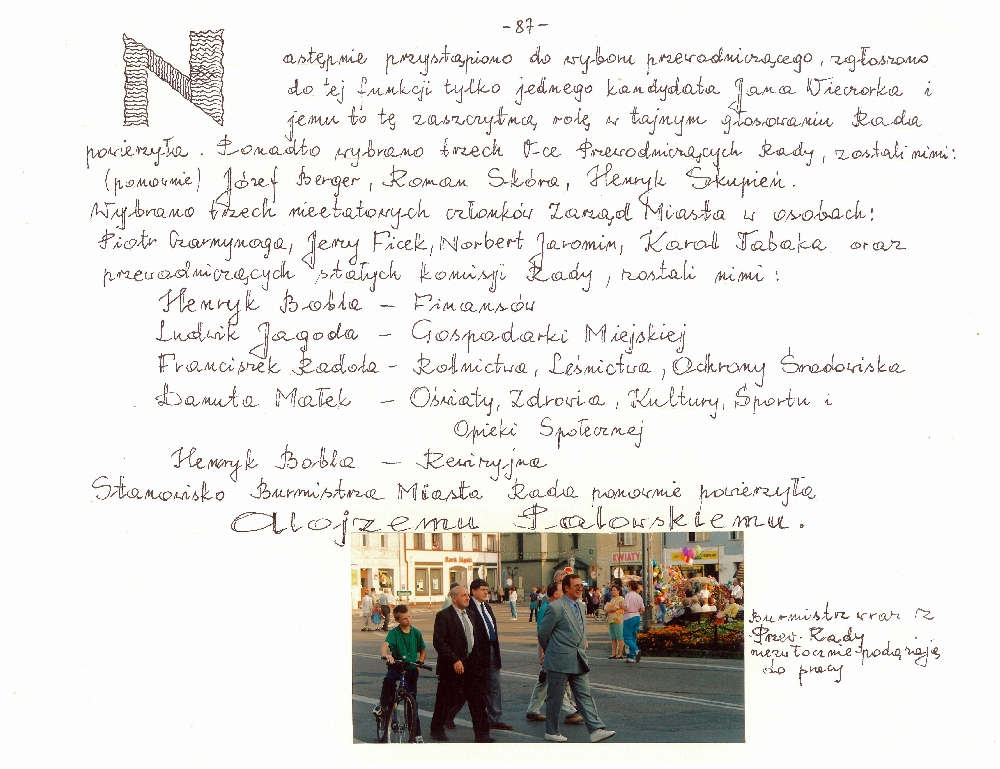 -87-
Następnie przystąpiono do wyboru przewodniczącego, zgłoszono
do tej funkcji tylko jednego kandydata Jana Wieczorka i
jemu to tę zaszczytną rolę w tajnym głosowaniu Rada
powierzyła. Ponadto wybrano trzech V-ce Przewodniczących Rady, zostali nimi:
(ponownie) Józef Berger, Roman Skóra, Henryk Skupień.
Wybrano trzech nieetatowych członków Zarząd Miasta w osobach:
Piotr Czarnynoga, Jerzy Ficek, Norbert Jaromin, Karol Tabaka oraz
przewodniczących stałych komisji Rady, zostali nimi:
Henryk Bobla – Finansów
Ludwik Jagoda – Gospodarki Miejskiej
Franciszek Radoła – Rolnictwa, Leśnictwa, Ochrony Środowiska
Danuta Małek – Oświaty, Zdrowia, Kultury, Sportu i
Opieki Społecznej
Henryk Bobla – Rewizyjna
Stanowisko Burmistrza Miasta Rada ponownie powierzyła
Alojzemu Patowskiemu.
Bank Śląski
KWIATY
Burmistrz wraz z
Przew. Rady
niezwłocznie podążają
do pracy